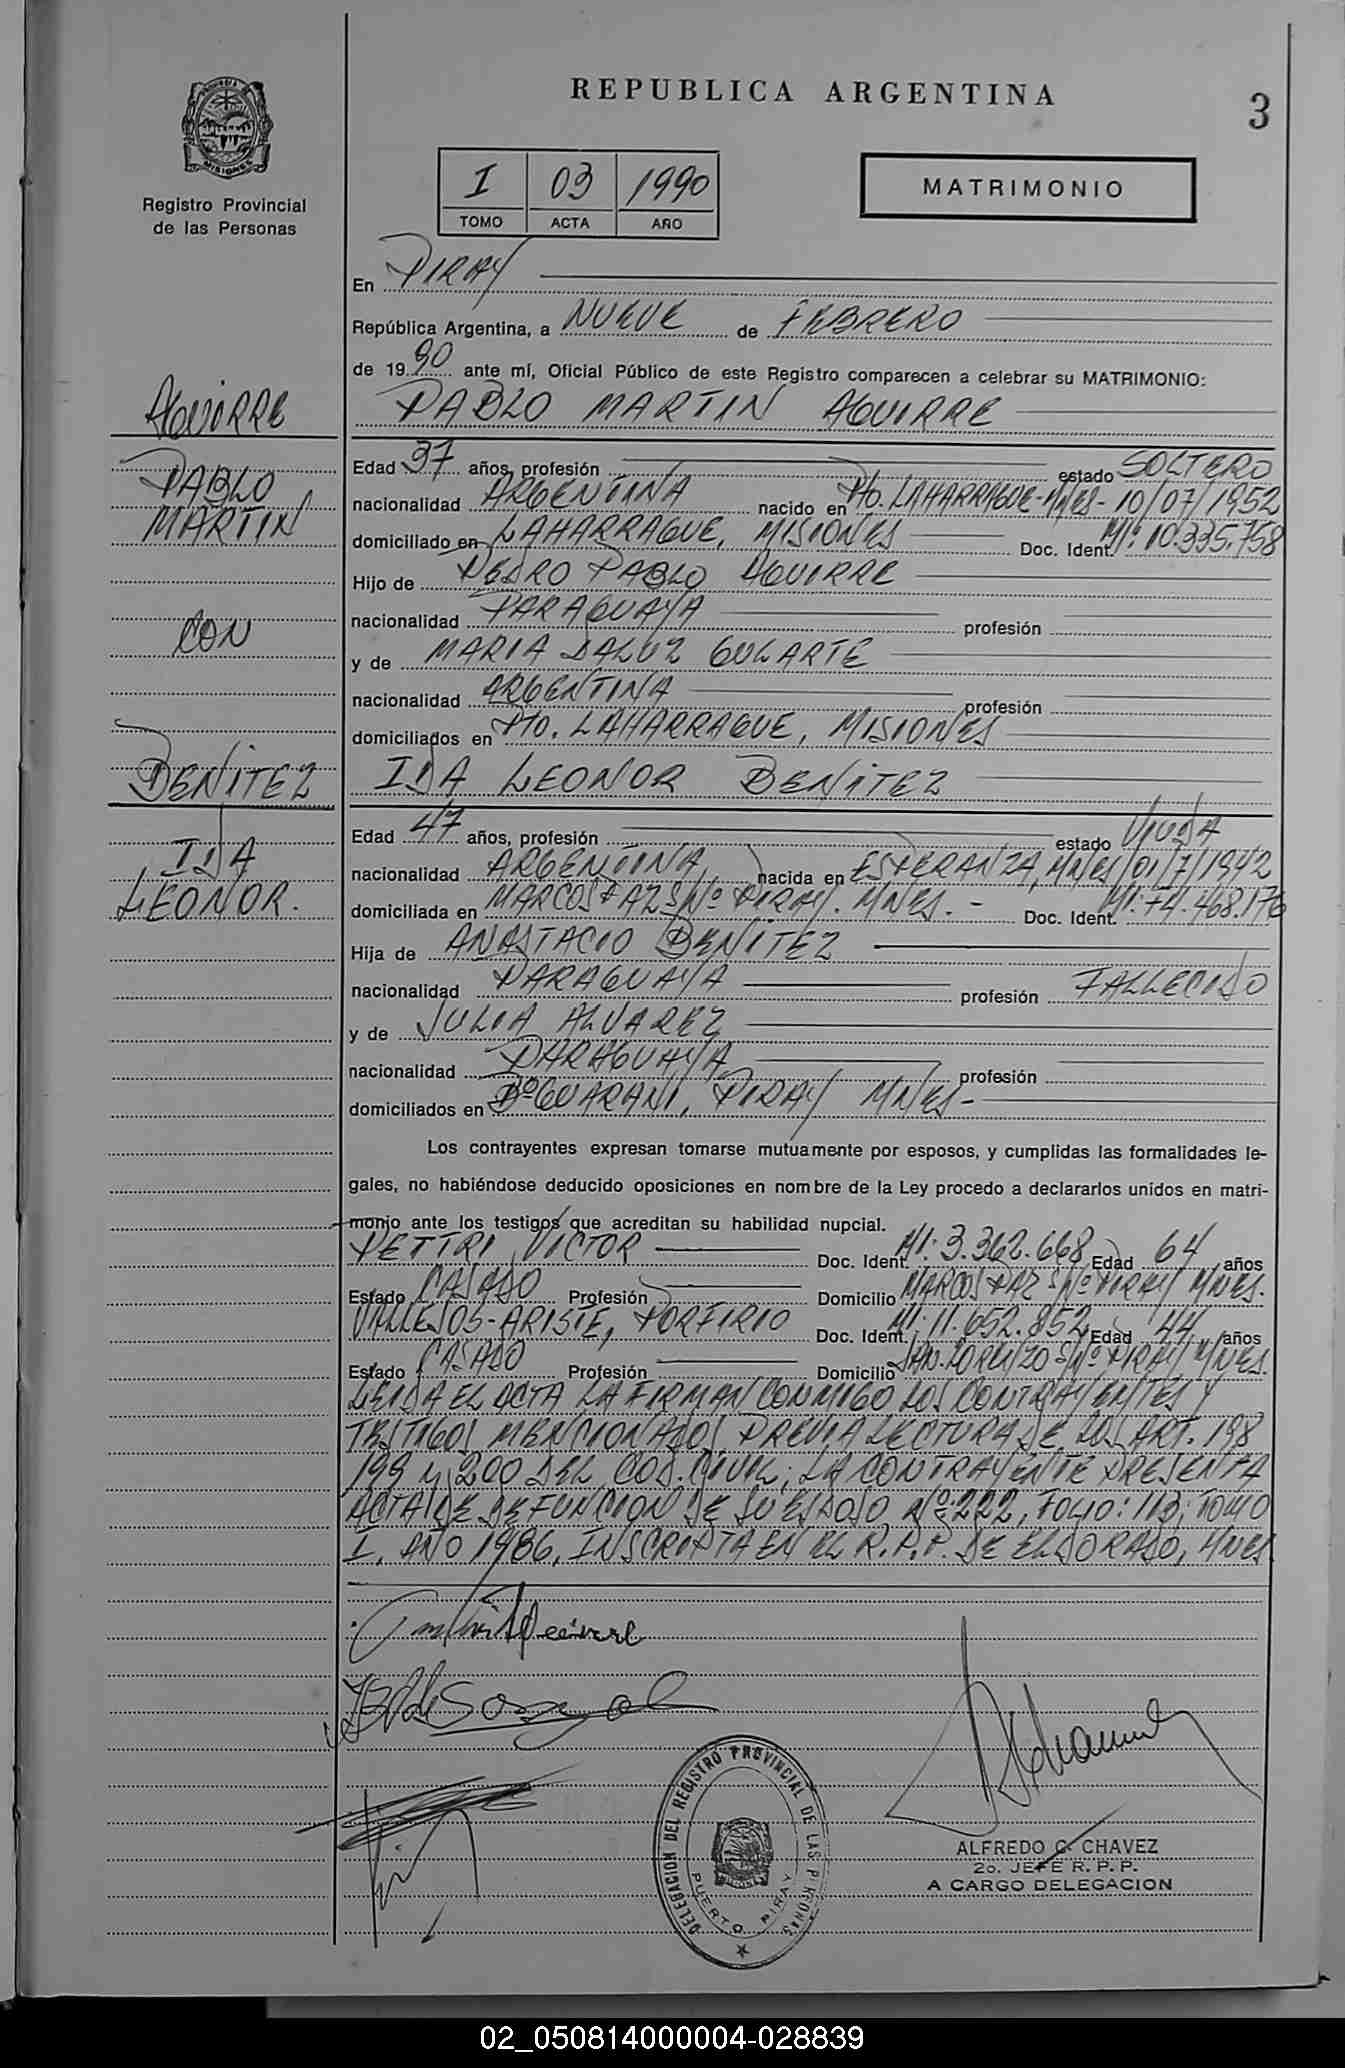 REPUBLICA ARGENTINA
3
Registro Provincial
de las Personas
I 03 1990
TOMO ACTA AÑO
MATRIMONIO
En PIRAY
República Argentina, a NUEVE de FEBRERO
de 1990 ante mí, Oficial Público de este Registro comparecen a celebrar su MATRIMONIO:
AGUIRRE
PABLO
MARTIN
CON
BENITEZ
IDA
LEONOR.
PABLO MARTIN AGUIRRE
Edad 37 años, profesión estado SOLTERO
nacionalidad ARGENTINA nacido en Pto. LAHARRAGUE-MNES- 10/07/1952
domiciliado en LAHARRAGUE, MISIONES Doc. Ident. MI: 10.335.758
Hijo de PEDRO PABLO AGUIRRE
nacionalidad PARAGUAYA profesión
y de MARIA DALUZ GULARTE
nacionalidad ARGENTINA profesión
domiciliados en Pto. LAHARRAGUE, MISIONES
IDA LEONOR BENITEZ
Edad 47 años, profesión estado VIUDA
nacionalidad ARGENTINA nacida en ESPERANZA, MNES/01/7/1942
domiciliada en MARCOS PAZ S/Nº PIRAY. MNES.- Doc. Ident. MI: 74.468.176
Hija de ANASTACIO BENITEZ
nacionalidad PARAGUAYA profesión FALLECIDO
y de JULIA ALVAREZ
nacionalidad PARAGUAYA profesión
domiciliados en Bº GUARANI, PIRAY MNES-
Los contrayentes expresan tomarse mutuamente por esposos, y cumplidas las formalidades le-
gales, no habiéndose deducido oposiciones en nombre de la Ley procedo a declararlos unidos en matri-
monio ante los testigos que acreditan su habilidad nupcial.
PETTRI VICTOR Doc. Ident. MI: 3.362.668 Edad 64 años
Estado CASADO Profesión Domicilio MARCOS PAZ S/Nº PIRAY MNES.
VALLEJOS-ARISTE, PORFIRIO Doc. Ident. MI: 11.652.852 Edad 44 años
Estado CASADO Profesión Domicilio SAN LORENZO S/Nº PIRAY MNES.
LEIDA EL ACTA LA FIRMAN CONMIGO LOS CONTRAYENTES Y
TESTIGOS MENCIONADOS PREVIA LECTURA DE LOS ART. 198
199 y 200 DEL COD. CIVIL; LA CONTRAYENTE PRESENTA
ACTA DE DEFUNCION DE SU ESPOSO Nº: 222, FOLIO: 113; TOMO
I, AÑO 1986, INSCRIPTA EN EL R.P.P. DE ELDORADO, MNES
DELEGACION DEL REGISTRO PROVINCIAL DE LAS PERSONAS
PUERTO PIRAY
ALFREDO C. CHAVEZ
2o. JEFE R. P. P.
A CARGO DELEGACION
02_050814000004-028839